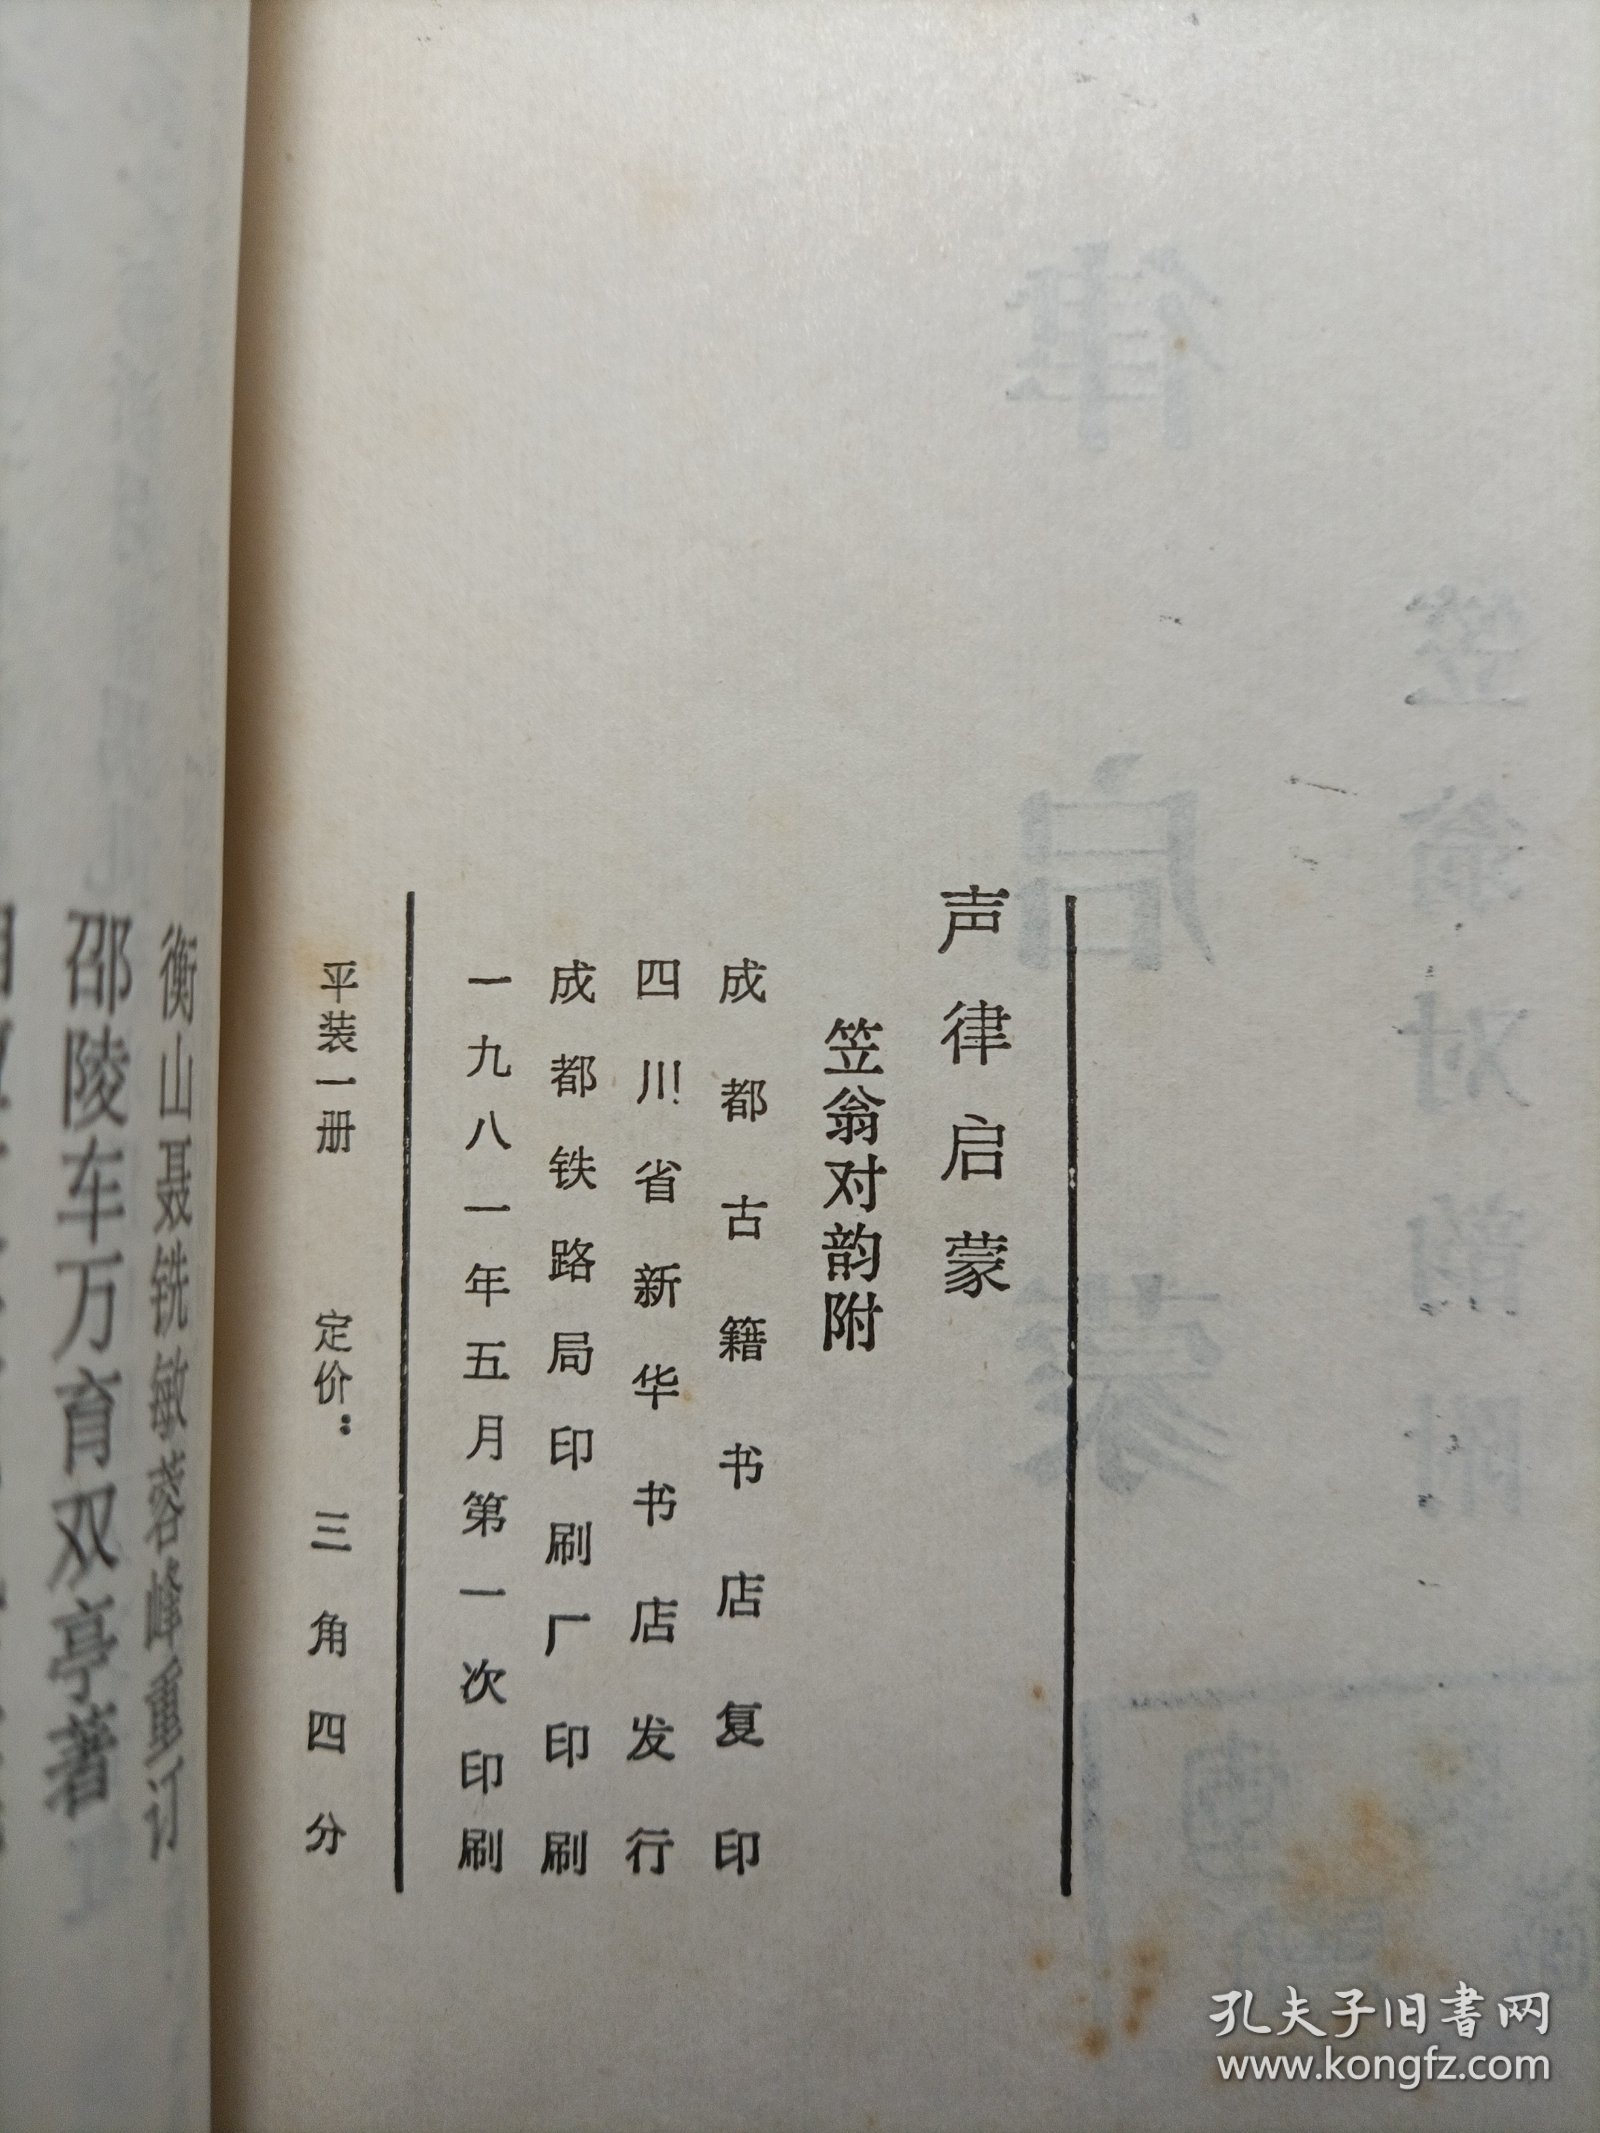 声律启蒙
笠翁对韵附
成都古籍书店复印
四川省新华书店发行
成都铁路局印刷厂印刷
一九八一年五月第一次印刷
平装一册 定价：三角四分
衡山聂铣敏蓉峰重订
邵陵车万育双亭著
孔夫子旧书网
www.kongfz.com